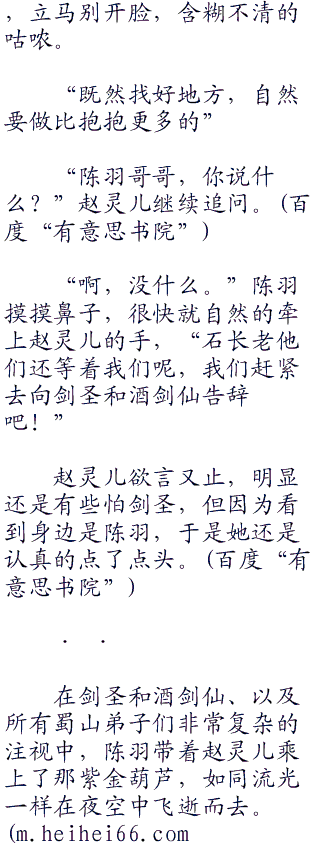 ，立马别开脸，含糊不清的
咕哝。
“既然找好地方，自然
要做比抱抱更多的”
“陈羽哥哥，你说什
么？”赵灵儿继续追问。(百
度“有意思书院”)
“啊，没什么。”陈羽
摸摸鼻子，很快就自然的牵
上赵灵儿的手，“石长老他
们还等着我们呢，我们赶紧
去向剑圣和酒剑仙告辞
吧！”
赵灵儿欲言又止，明显
还是有些怕剑圣，但因为看
到身边是陈羽，于是她还是
认真的点了点头。(百度“有
意思书院”)
．．
在剑圣和酒剑仙、以及
所有蜀山弟子们非常复杂的
注视中，陈羽带着赵灵儿乘
上了那紫金葫芦，如同流光
一样在夜空中飞逝而去。
(m.heihei66.com